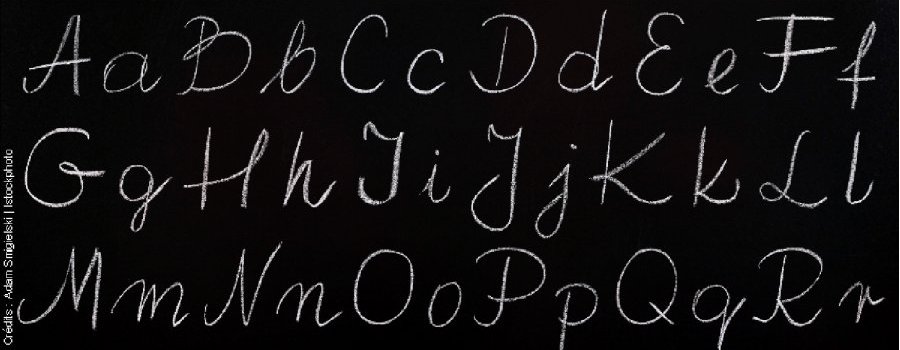 A a B b C c D d E e F f
G g H h I i J j K k L l
M m N n O o P p Q q R r
Crédits : Adam Smigielski | Istockphoto